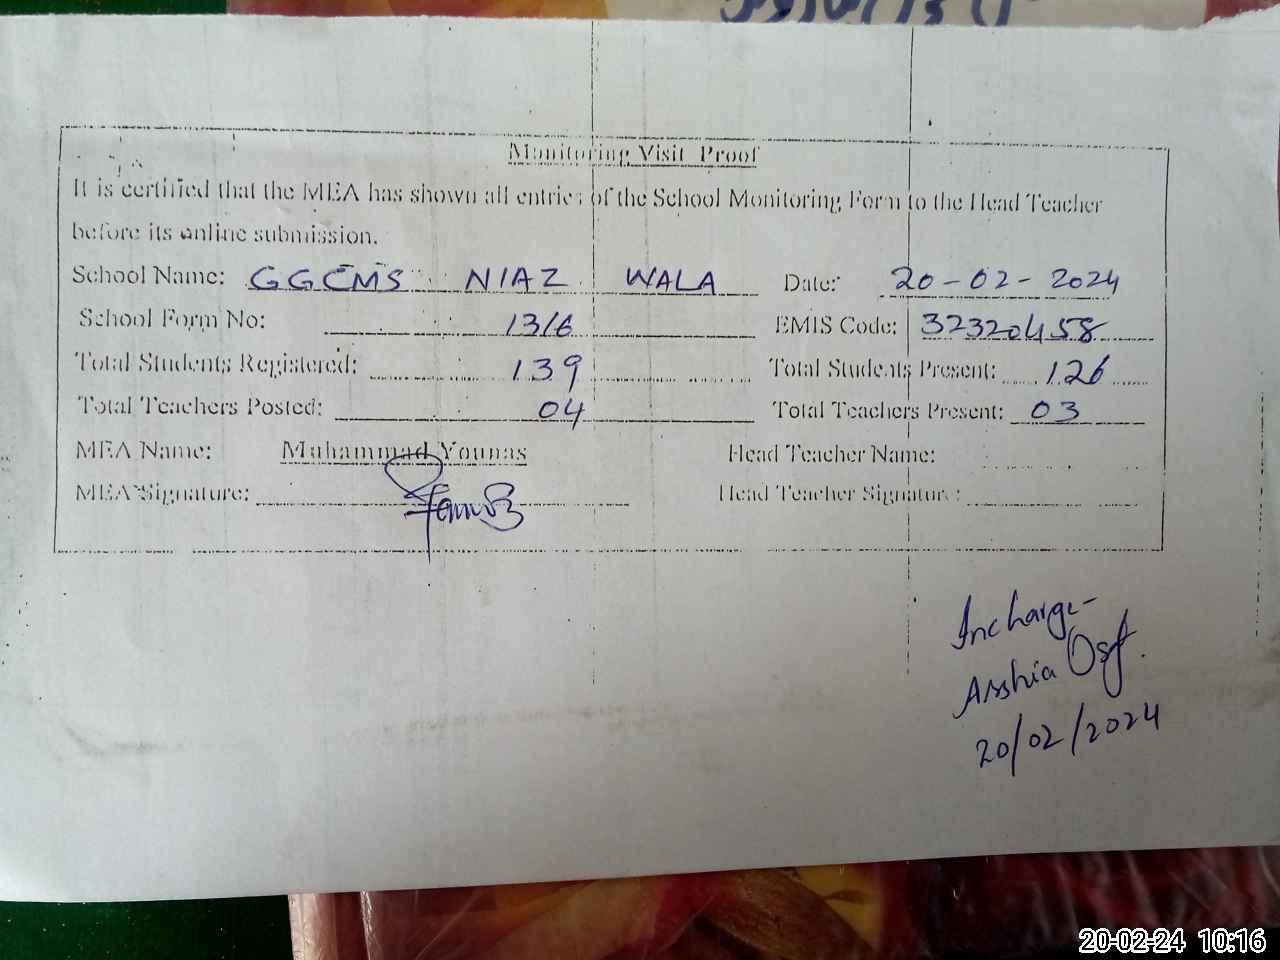 Monitoring Visit Proof
It is certified that the MEA has shown all entries of the School Monitoring Form to the Head Teacher
before its online submission.
School Name: GGCMS NIAZ WALA Date: 20-02-2024
School Form No: 1316 EMIS Code: 32320458
Total Students Registered: 139 Total Students Present: 126
Total Teachers Posted: 04 Total Teachers Present: 03
MEA Name: Muhammad Younas Head Teacher Name:
MEA Signature: Head Teacher Signature:
Incharge-
Asshia
20/02/2024
20-02-24 10:16